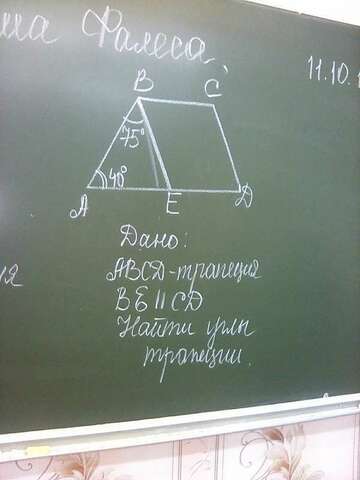 ма Фалеса
11.10.
B C
75°
40°
A E D
Дано:
ABCD-трапеция
BE || CD
Найти углы
трапеции.
ия